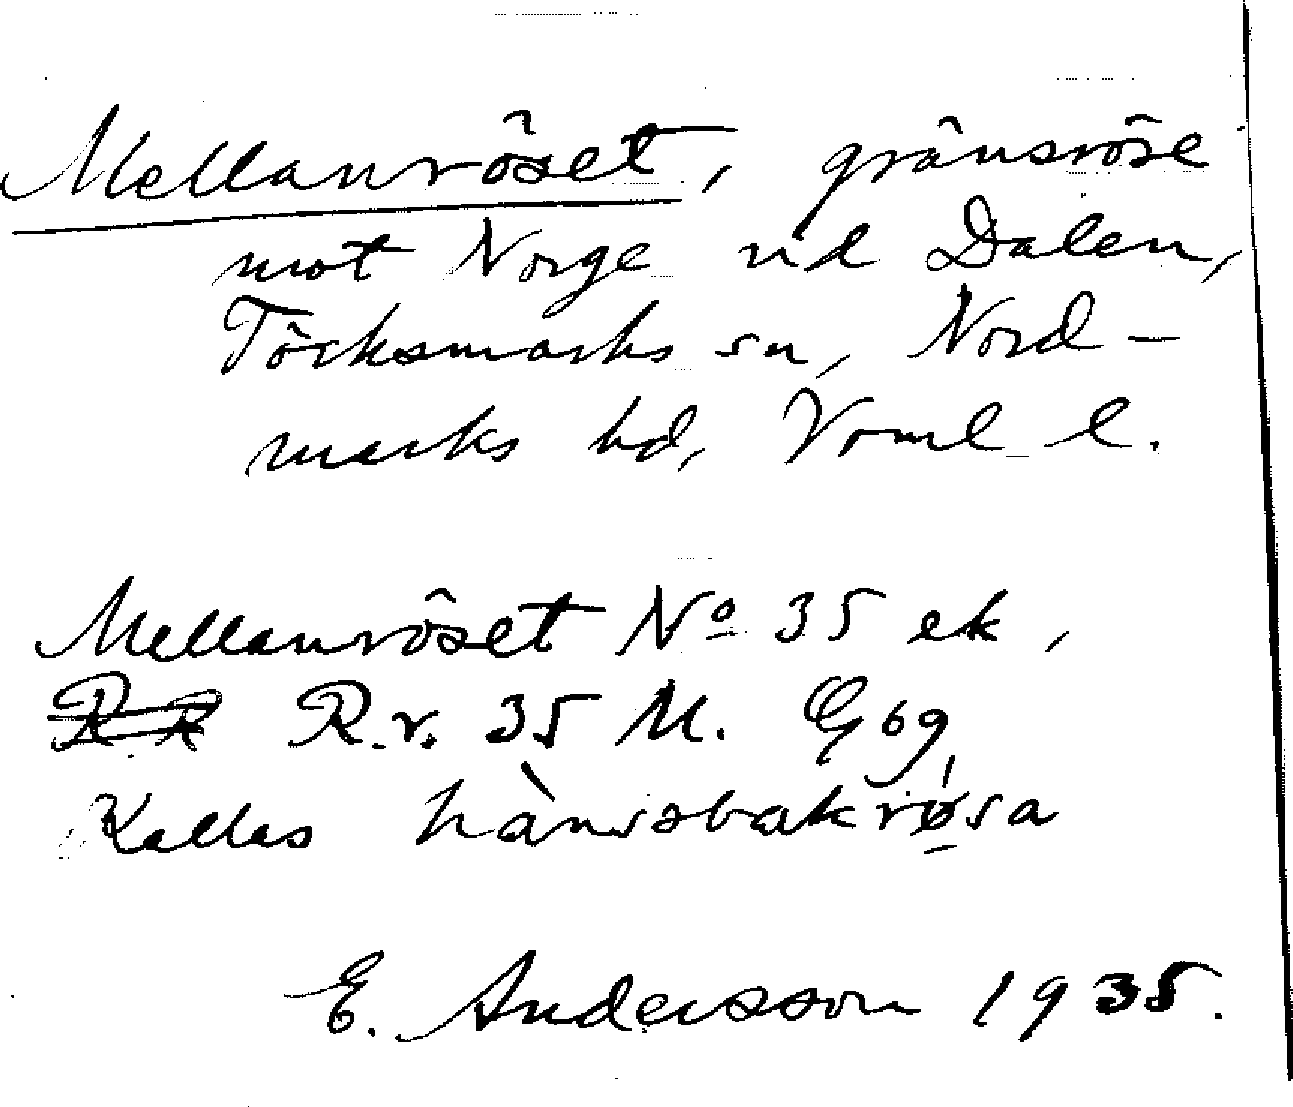 Mellanröset, gränsröse
mot Norge vid Dalen,
Töcksmarks sn, Nord-
marks hd, Vrml l.
Mellanröset No 35 ek,
R R R.r. 35 M. G 69
Kallas hànsbakrøsa
E. Andersson 1935.